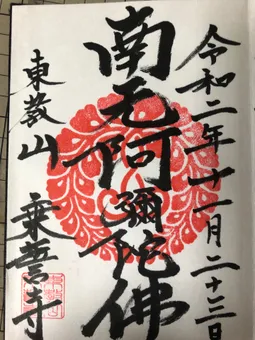 令和二年十一月二十三日
南无阿彌陀佛
東教山
乗誓寺